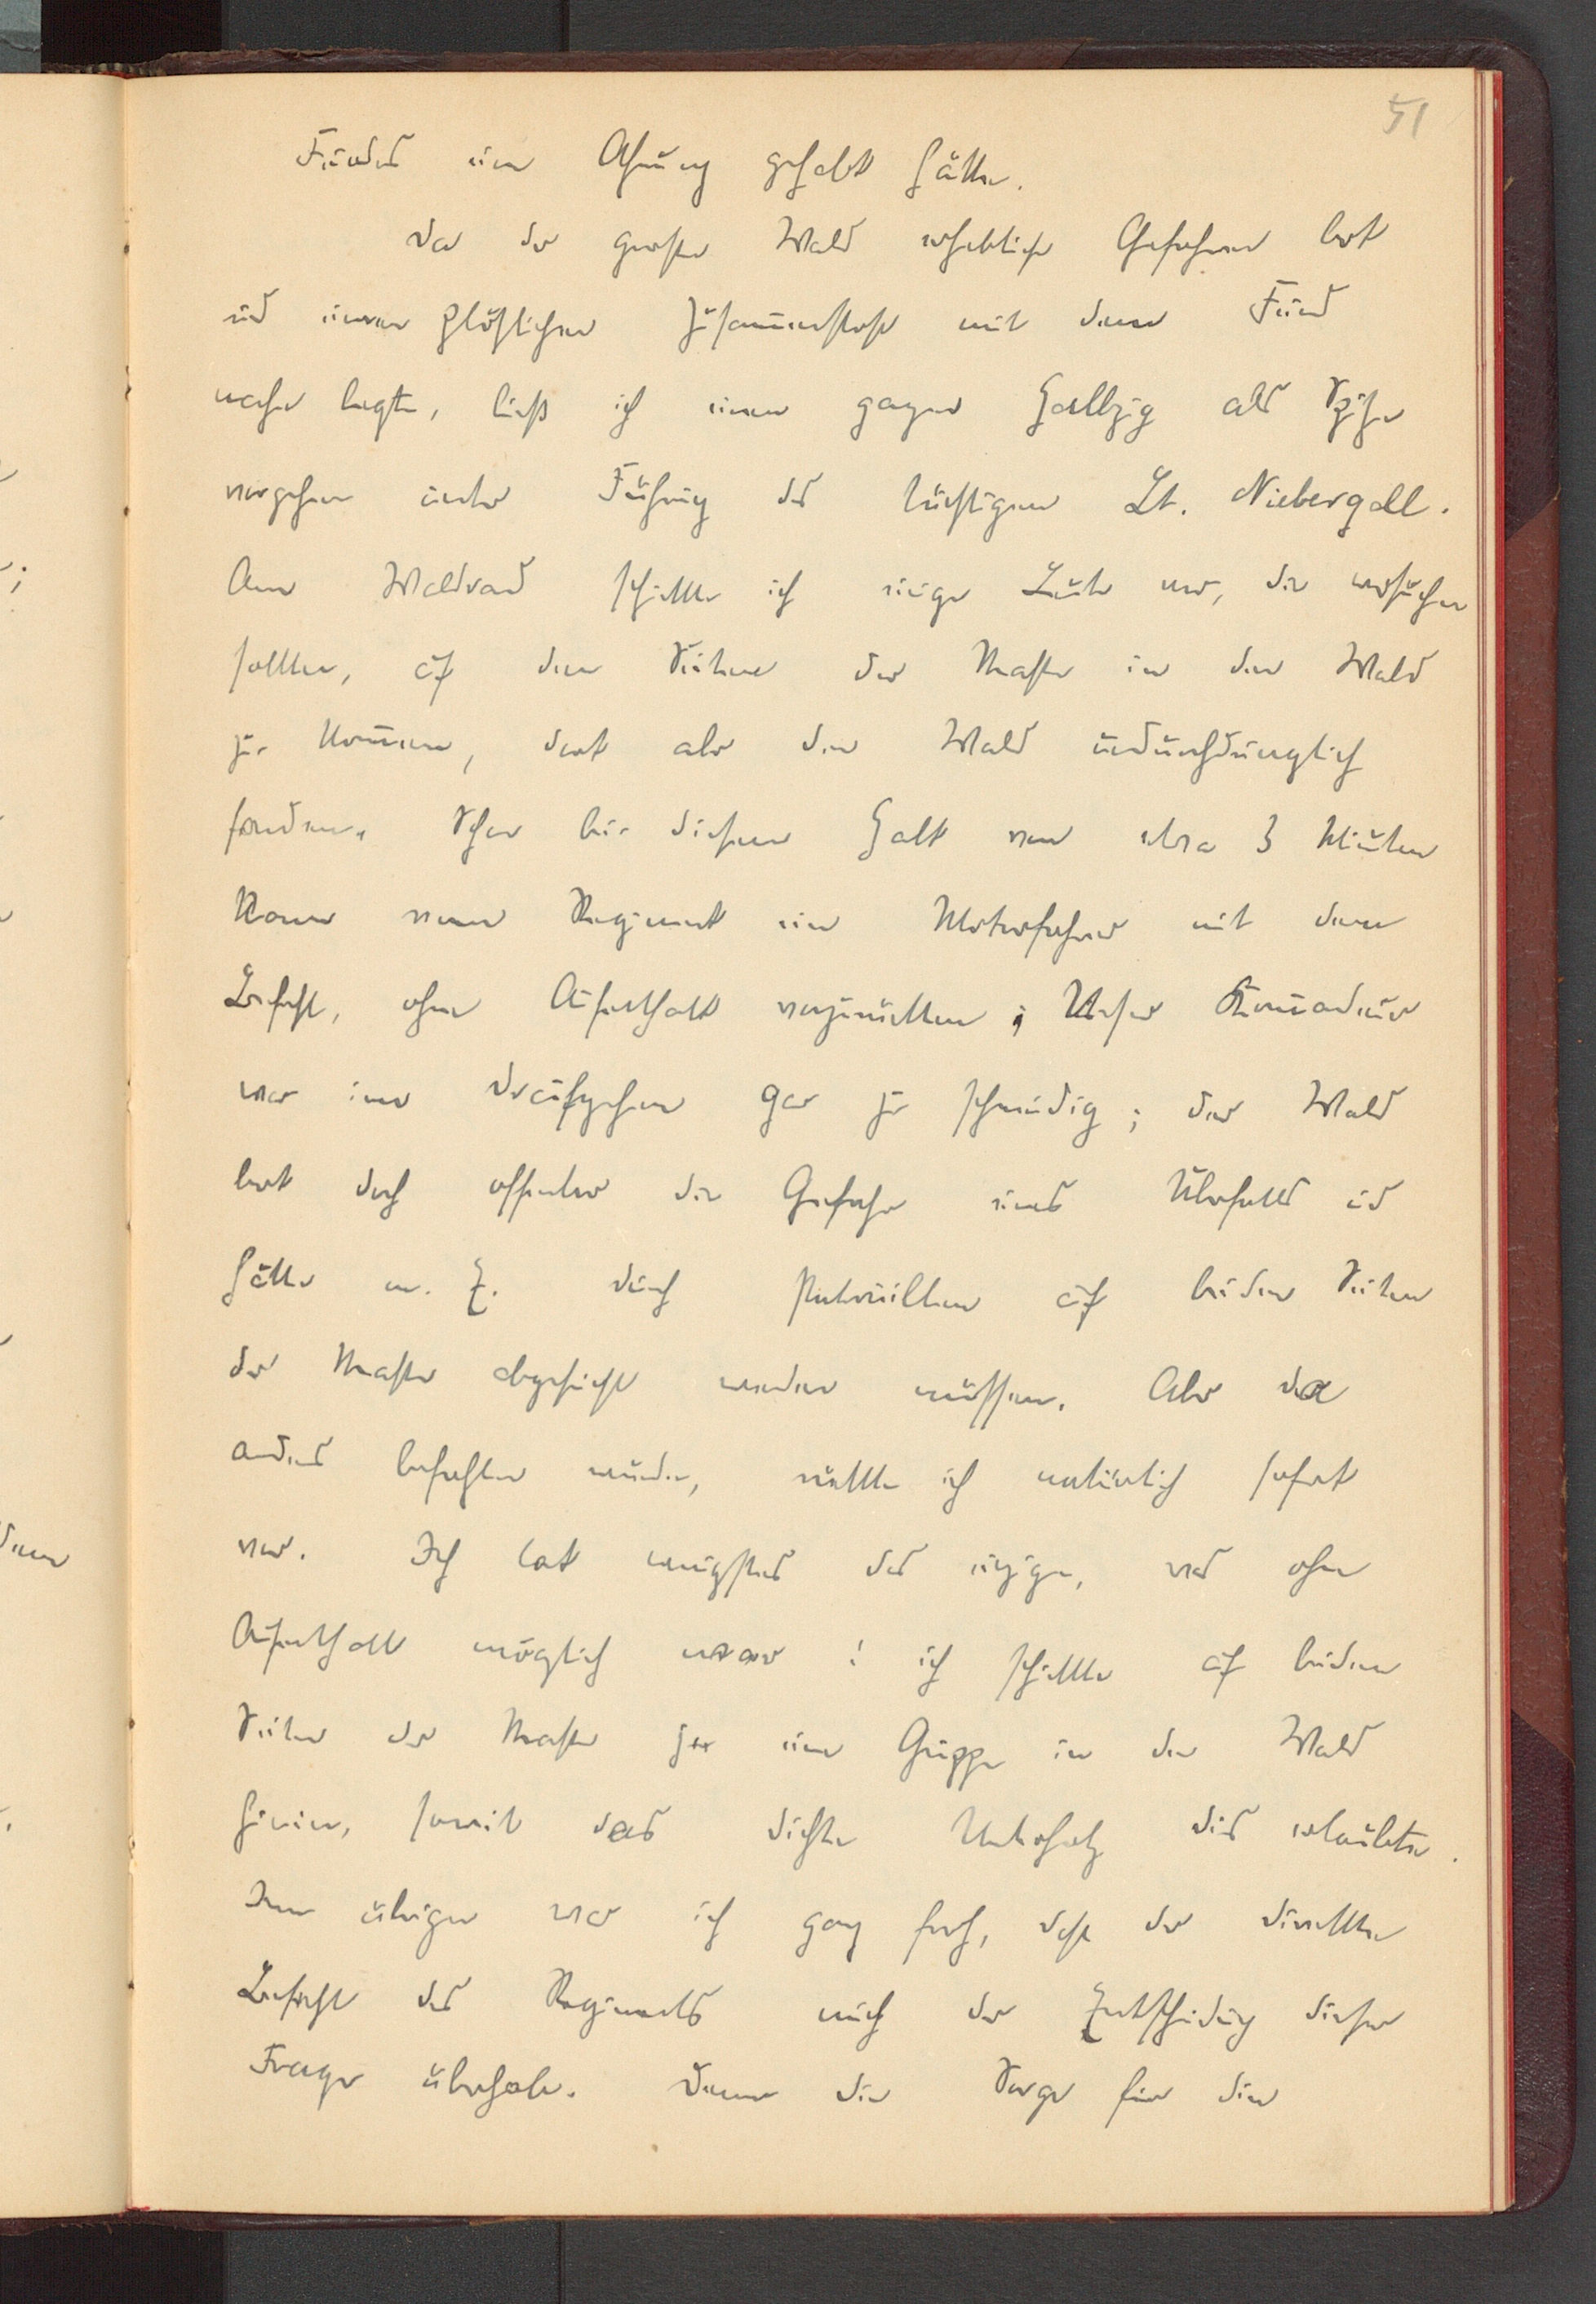 51
Feindes eine Ahnung gehabt hätte.
Da der grosse Wald erhebliche Gefahren bot
und einen plötzlichen Zusammenstoss mit dem Feind
nahe legte, ließ ich einen ganzen Halbzug als Spitze
vorgehen unter Führung des tüchtigen Lt. Niebergall.
Am Waldrand schickte ich einige Leute vor, die versuchen
sollten, auf den Seiten der Strasse in den Wald
zu kommen, dort aber den Wald undurchdringlich
fanden. Schon bei diesem Halt von etwa 3 Minuten
kam vom Regiment ein Motorfahrer mit dem
Befehl, ohne Aufenthalt vorzurücken; Unser Kommandeur
war im Draufgehen gar zu schneidig; der Wald
bot doch offenbar die Gefahr eines Überfalls und
hätte m. E. durch Patrouillen auf beiden Seiten
der Strasse abgesucht werden müssen. Aber da
anders befohlen wurde, rückte ich natürlich sofort
vor. Ich tat wenigstens das einzige, was ohne
Aufenthalt möglich war: ich schickte auf beiden
Seiten der Strasse je eine Gruppe in den Wald
hinein, soweit das dichte Unterholz dies erlaubte.
Im übrigen war ich ganz froh, dass der direkte
Befehl des Regiments mich der Entscheidung dieser
Frage überhob. Denn die Sorge für die